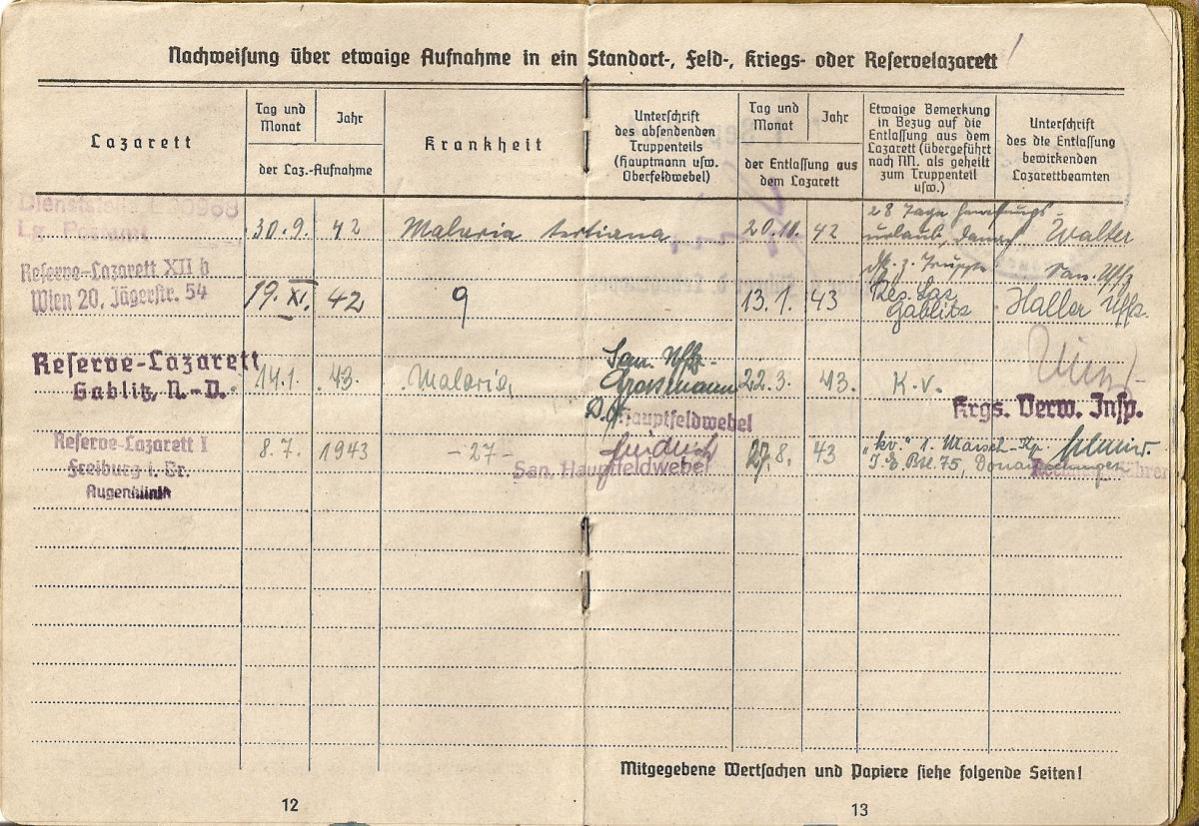 Nachweisung über etwaige Aufnahme in ein Standort-, Feld-, Kriegs- oder Reservelazarett
Lazarett
Tag und Monat
Jahr
der Laz.-Aufnahme
Krankheit
Unterschrift
des absendenden
Truppenteils
(Hauptmann usw.
Oberfeldwebel)
Tag und Monat
Jahr
der Entlassung aus
dem Lazarett
Etwaige Bemerkung
in Bezug auf die
Entlassung aus dem
Lazarett (übergeführt
nach M. als geheilt
zum Truppenteil
usw.)
Unterschrift
des die Entlassung
bewirkenden
Lazarettbeamten
Dienststelle
Lg. Postamt
30.9. 42 Malaria tertiana 20.10. 42
28 Tage
urlaub, dann
z. Truppe
Walter
San. Uffz
Reserve-Lazarett XII b
Wien 20. Jägerstr. 54
19. XI. 42 9 13.1. 43
Res. Laz.
Gablitz
Haller Uffz.
Reserve-Lazarett
Gablitz, N.-D.
14.1. 43. Malaria,
San. Uffz.
Hauptfeldwebel
22.3. 43. K.v.
Krgs. Verw. Insp.
Reserve-Lazarett I
Freiburg i. Br.
Augenklinik
8.7. 1943 -27-
San. Hauptfeldwebel
27.8. 43
"kv." 1. Marsch-Kp.
75, Donaueschingen
Mitgegebene Wertsachen und Papiere siehe folgende Seiten!
12
13